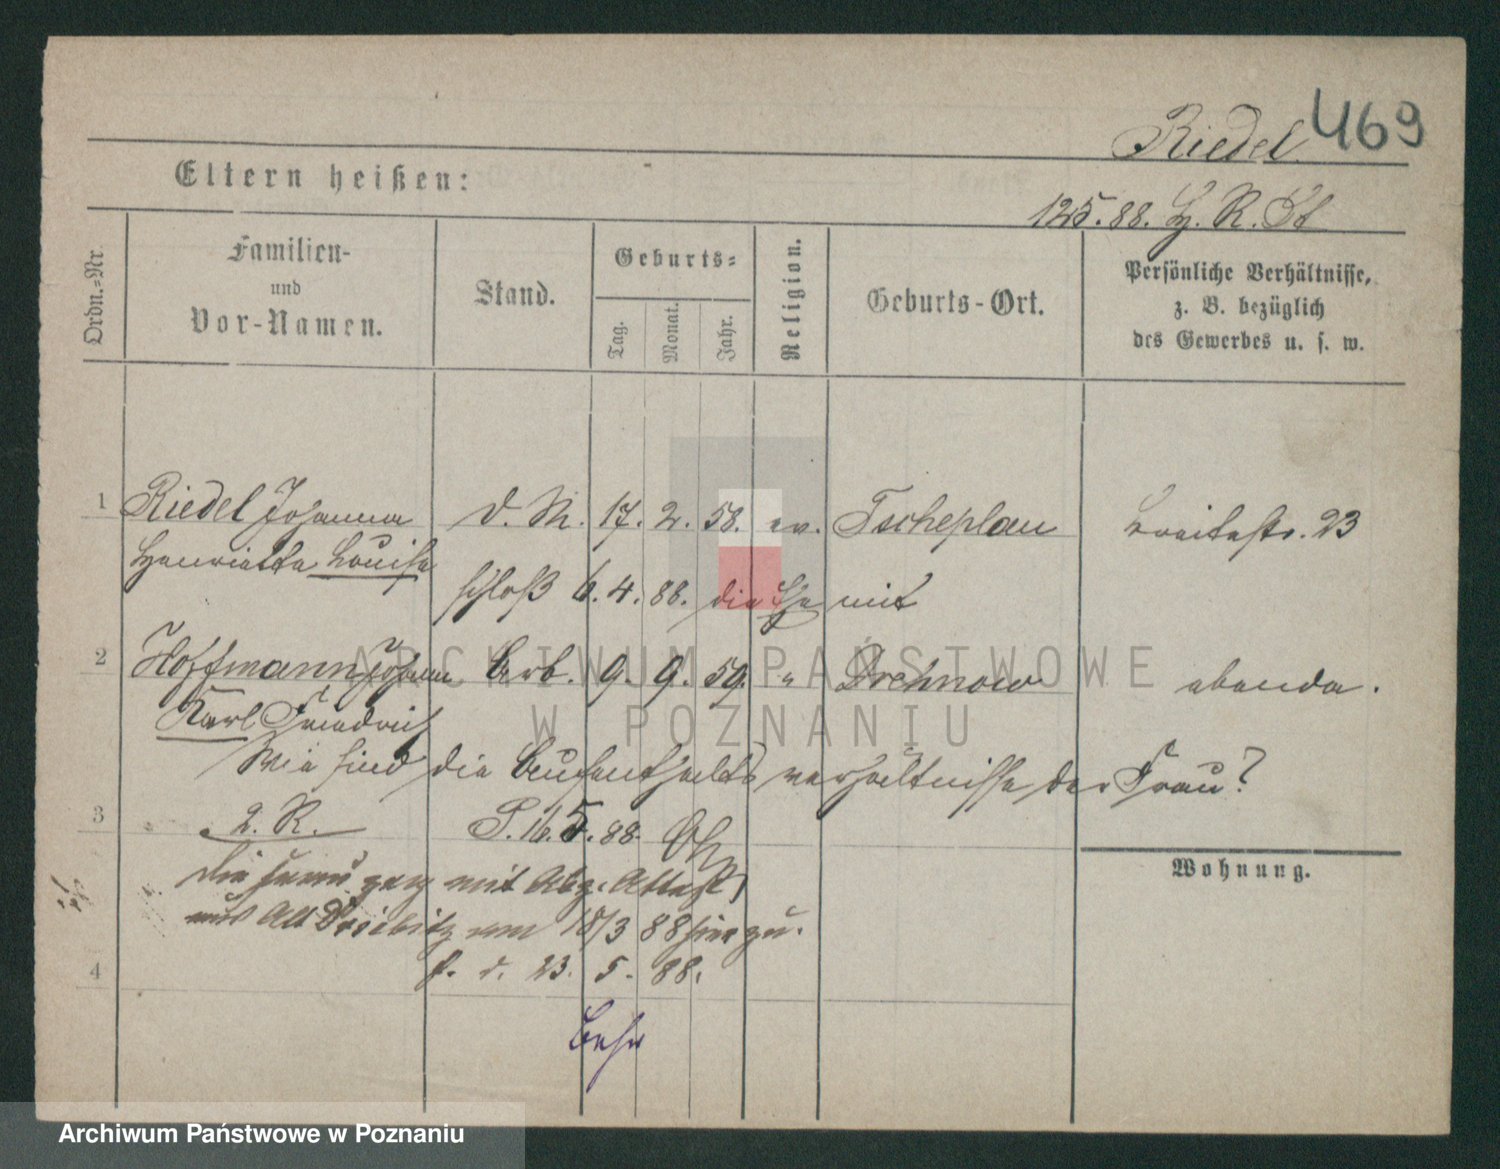 469
Riedel.
Eltern heißen:
125.88. H. R. St
Ordn.-Nr.
Familien-
und
Vor-Namen.
Stand.
Geburts-
Tag.
Monat.
Jahr.
Religion.
Geburts-Ort.
Persönliche Verhältnisse,
z. B. bezüglich
des Gewerbes u. s. w.
1 Riedel Johanna d. M. 17. 2. 58. ev. Tscheplau Breitestr. 23
Henriette Louise
schloß 6. 4. 86. die Ehe mit
2 Hoffmann Johann Arb. 9. 9. 59. " Drehnow ebenda.
Karl Friedrich
Wie sind die Aufenthaltsverhältnisse der Frau?
3 2. R. P. 16. 5. 88.
Wohnung.
Die Frau zog mit Abz. Attest
aus Alt Driebitz am 18/3 88 hier zu.
4 P. d. 23. 5. 88.
Behr
ARCHIWUM PAŃSTWOWE
W POZNANIU
Archiwum Państwowe w Poznaniu